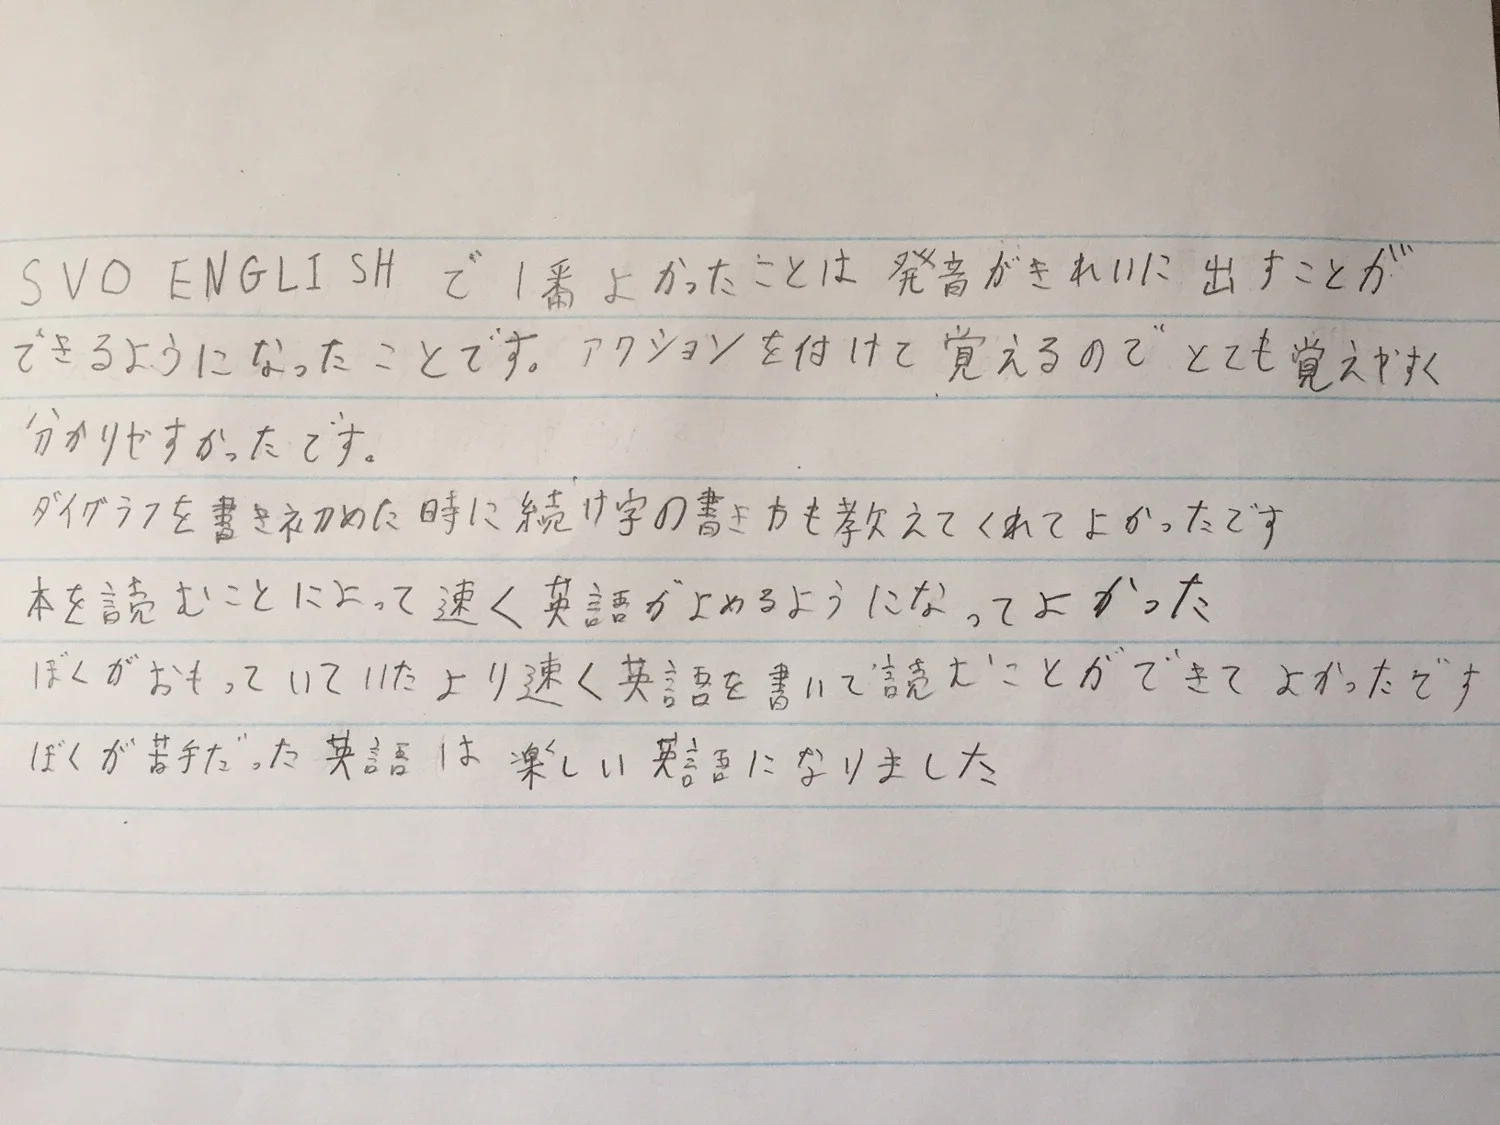 SVO ENGLISH で1番よかったことは発音がきれいに出すことが
できるようになったことです。アクションを付けて覚えるのでとても覚えやすく
分かりやすかったです。
ダイグラフを書き初めた時に続け字の書き方も教えてくれてよかったです
本を読むことによって速く英語がよめるようになってよかった
ぼくがおもっていていたより速く英語を書いて読むことができてよかったです
ぼくが苦手だった英語は楽しい英語になりました